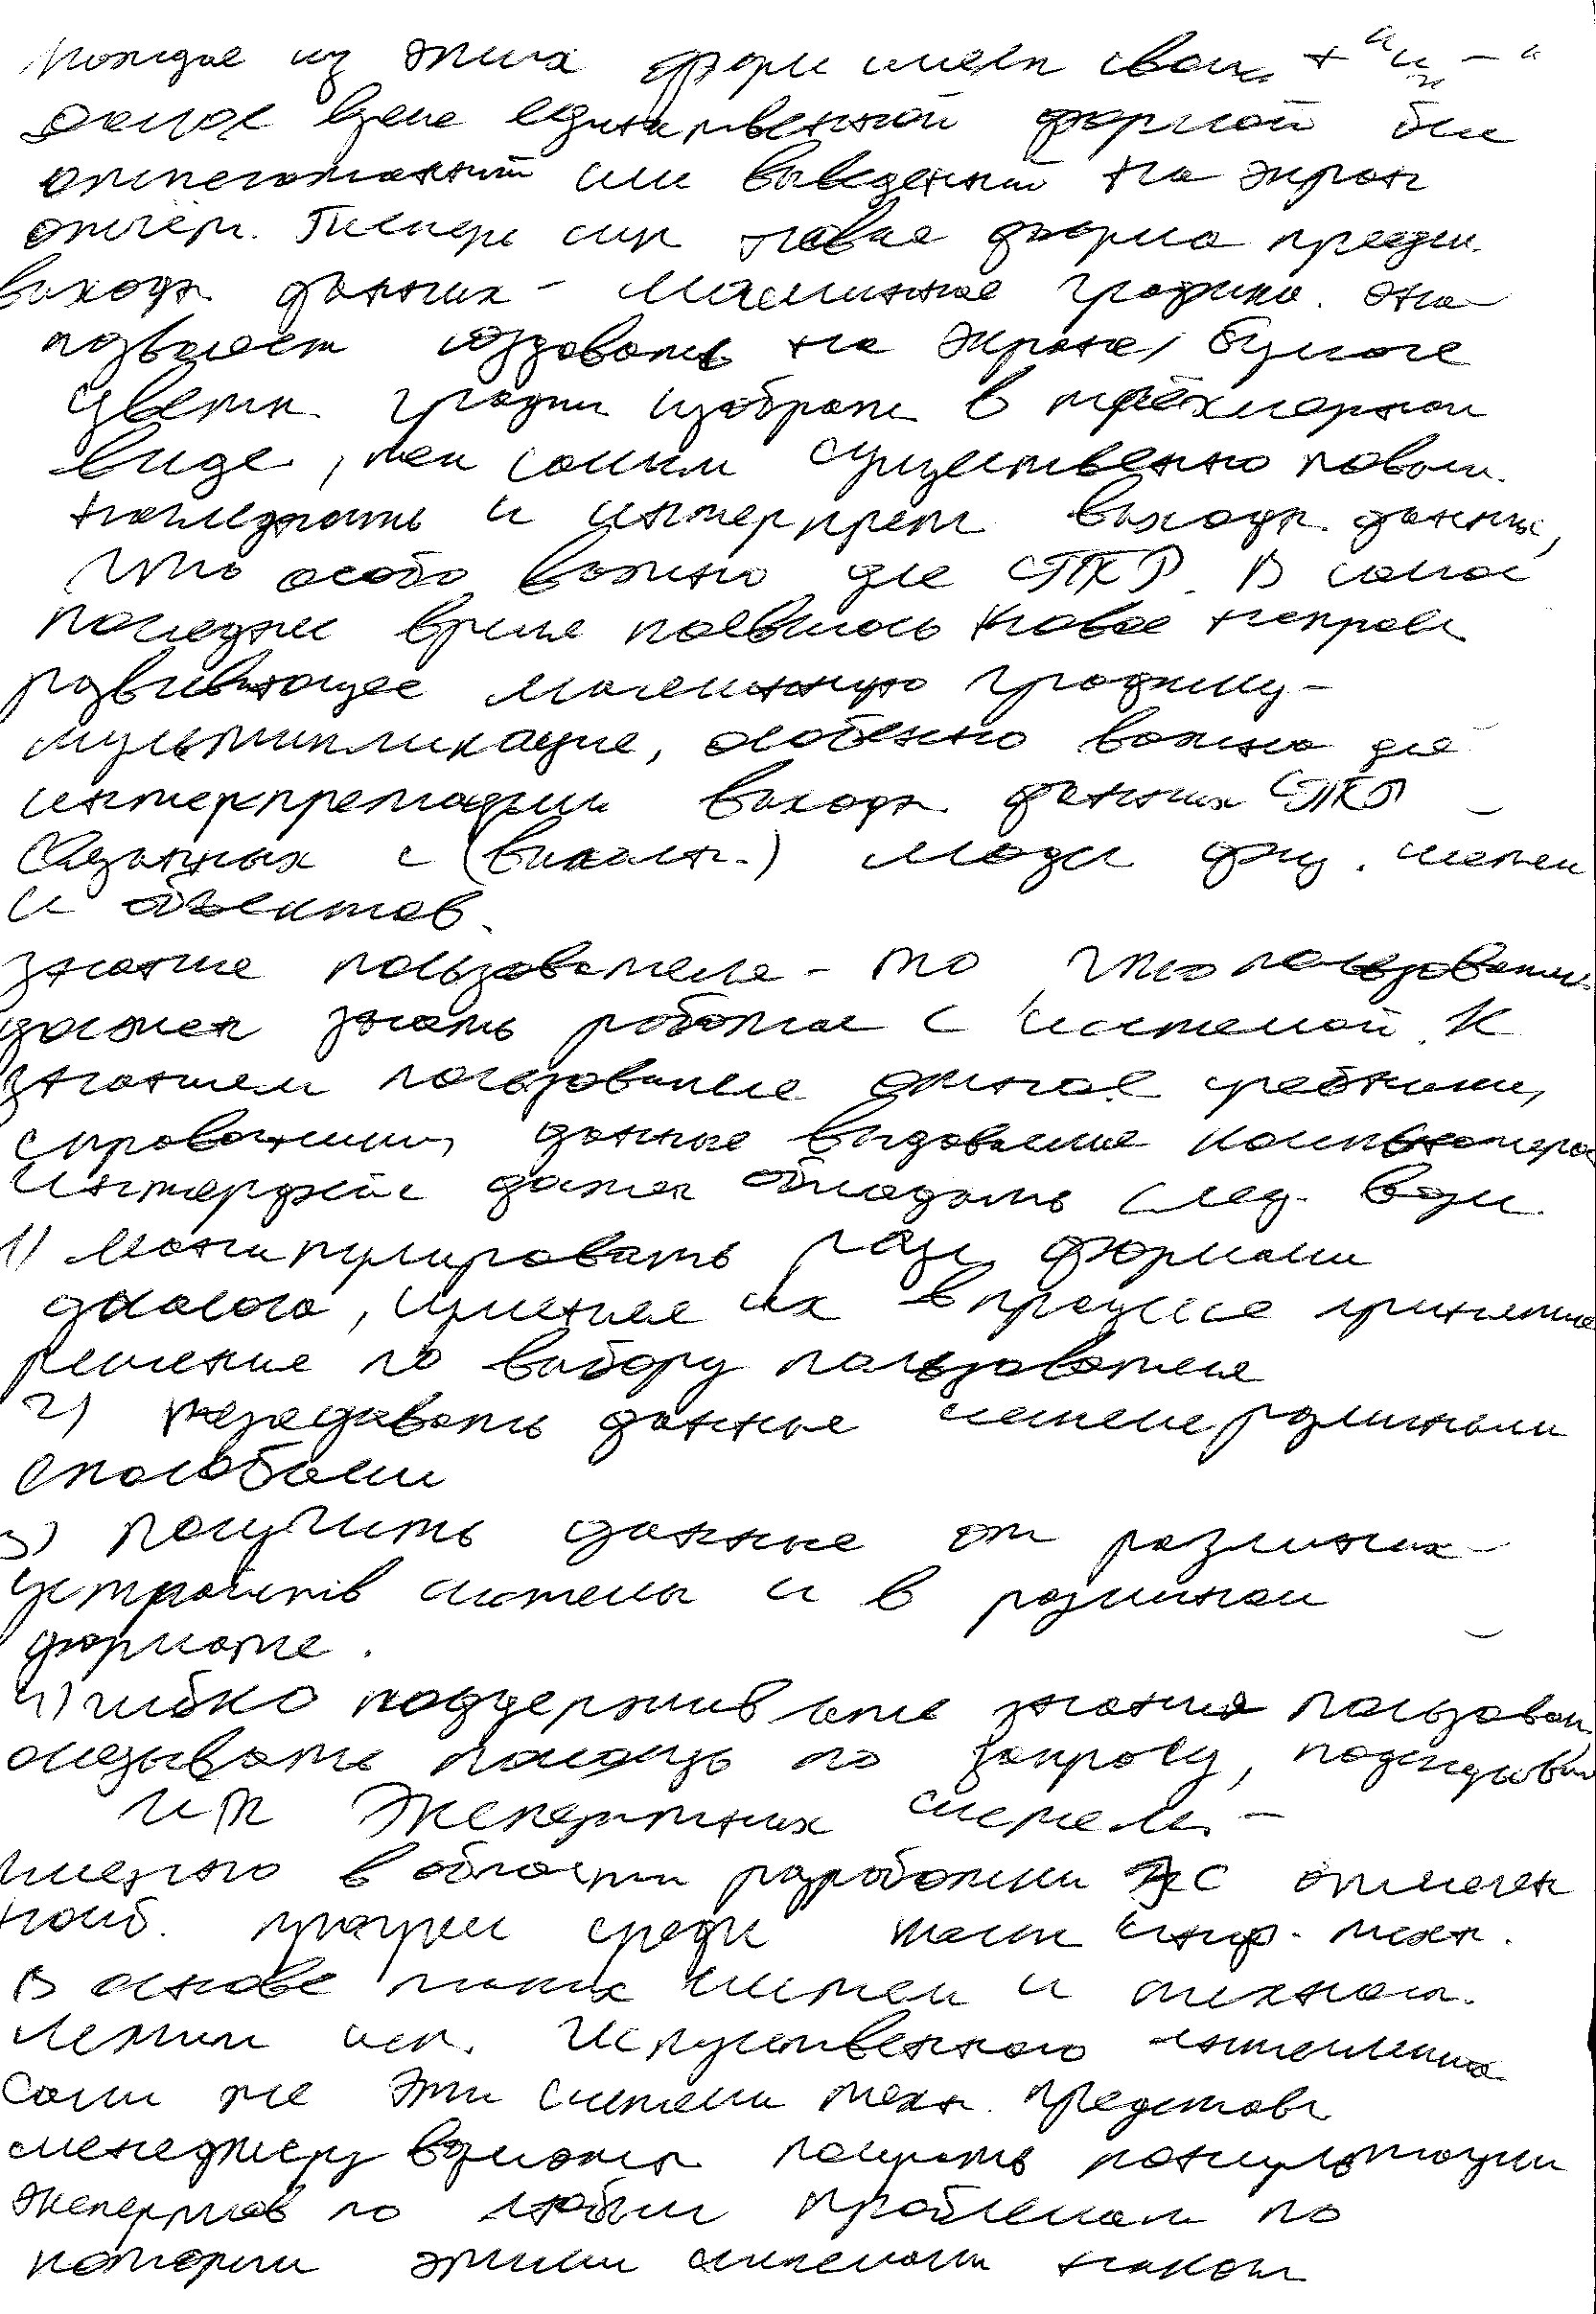 Каждые из этих форм имеет свои "+" и "-"
долгое время единственной формой был
отпечатанный или выведенный на экран
отчёт. Теперь сущ новые форма предст.
выходн. данных - машинная графика. Она
позволяет создавать на экране, бумаге
цветн. график изображ в трёхмерном
виде, тем самым существенно повыш.
наглядность и интерпрет выходн. данных,
что особо важно для СПКР. В самое
последнее время появилось новое направл
развивающее машинную графику -
мультипликация, особенно важна для
интерпретации выходн. данных СПКР
связанных с (          ) модел физ. систем
и объектов.
знание пользователя - то, что пользователь
должен знать работая с системой. К
знаниям пользователя относ учебники,
справочники, данные выдаваемые компьютером
Интерфейс должен обладать след. возм.
1) манипулировать разл формами
диалога, изменяя их в процессе принятия
решения по выбору пользователя
2) передавать данные системе различными
способами
3) получить данные от различных
устройств системы и в различном
формате.
4) гибко поддерживать знания пользоват,
оказывать помощь по запросу, подсказыв
ИТ Экспертных систем -
именно в области разработки ЭС отмечен
наиб. прогресс среди комп инф. техн.
В основе таких систем и технол.
лежит исп. Искусственного интеллекта
Сами же эти системы техн. представл
менеджеру возможн получать консультации
экспертов по любым проблемам по
которым этими системами накопл